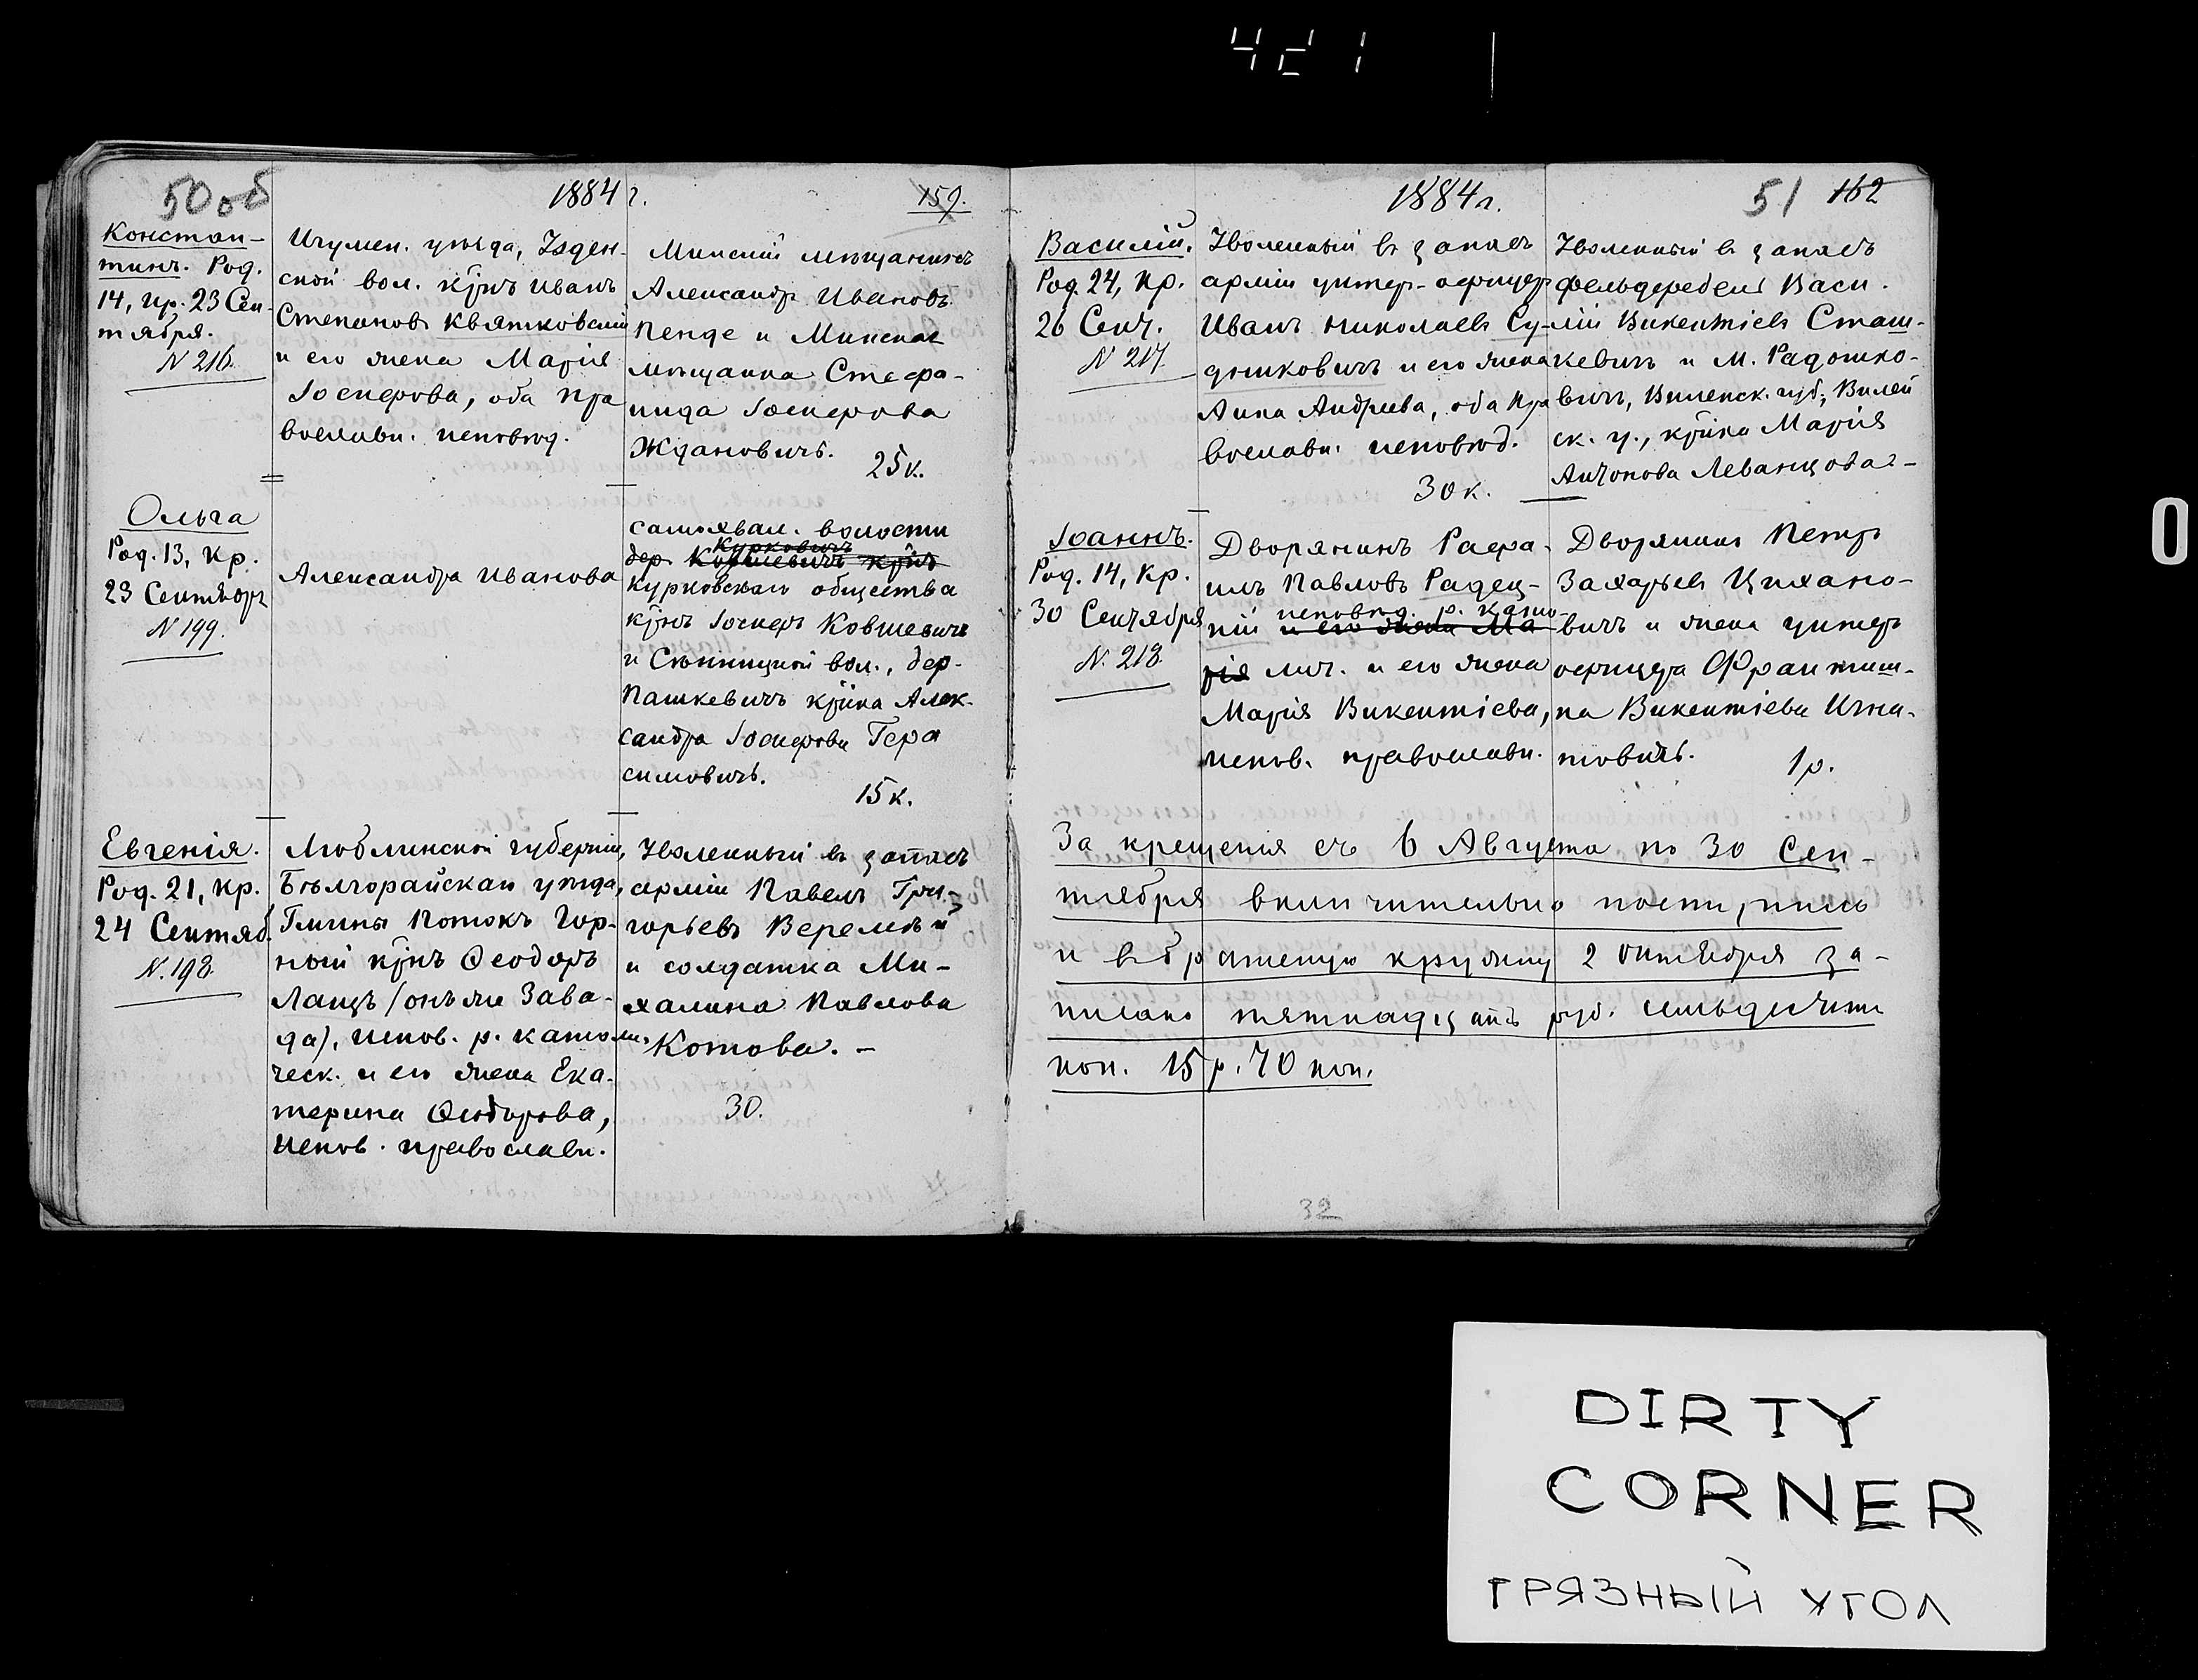 421
50 об
1884 г.
159.
Констан-
тинъ. Род.
14, кр. 23 Сен-
тября.
N 216.
Игумен. уѣзда, Узден-
ской вол. крнъ Иванъ
Степановъ Квятковскій
и его жена Марія
Іосифова, оба пра
вославн. исповѣд.
Минскій мѣщанинъ
Александръ Ивановъ
Пенде и Минская
мѣщанка Стефа-
нида Іосифова
Ждановичъ.
25 к.
Ольга
Род. 13, кр.
23 Сентября
N 199.
Александра Иванова
Самохвал. волости
Курковичъ
дер. Ковшевичъ крнъ
Курковскаго общества
крнъ Іосифъ Ковшевичъ
и Сѣницкой вол., дер.
Пашкевичъ крнка Алек-
сандра Іосифова Гера
симовичъ.
15 к.
Евгенія.
Род. 21, кр.
24 Сентяб.
N. 198.
Люблинской губерніи,
Бѣлгорайскаго уѣзда,
Гмины Потокъ Гор-
ный крнъ Ѳеодоръ
Лащъ (онъ же Зава-
да), испов. р. католи-
ческ. и его жена Ека-
терина Ѳеодорова,
испов. православн.
Уволенный въ запасъ
арміи Павелъ Гри-
горьевъ Веремѣй
и солдатка Ми-
халина Павлова
Котова. -
30.
1884 г.
51
162
Василій.
Род. 24, кр.
26 Сент.
N 217.
Уволенный въ запасъ
арміи унтер-офицер
Иванъ Николаевъ Су-
дниковичъ и его жена
Анна Андреева, оба пра
вославн. исповѣд.
30 к.
Уволенный въ запасъ
фельдфебель Васи-
лій Викентіевъ Сташ-
кевичъ и М. Радошко-
вичъ, Виленск. губ., Вилей
ск. у., крнка Марія
Антонова Леванцова -
Іоаннъ.
Род. 14, кр.
30 Сентября
N. 218.
Дворянинъ Рафа-
илъ Павловъ Радец-
исповѣд. р. като-
кій и его жена Ма-
рія лич. и его жена
Марія Викентіева,
испов. православн.
Дворянинъ Петръ
Захарьевъ Цихано-
вичъ и жена унтеръ
офицера Франтиш-
ка Викентіева Игна-
товичъ.
1 р.
За крещенія съ 6 Августа по 30 Сен-
тября включительно
и въ братскую кружку 2 Октября за-
писано пятнадцать руб. семьдесятъ
коп. 15 р. 70 коп.
32
0
DIRTY
CORNER
ГРЯЗНЫЙ УГОЛ